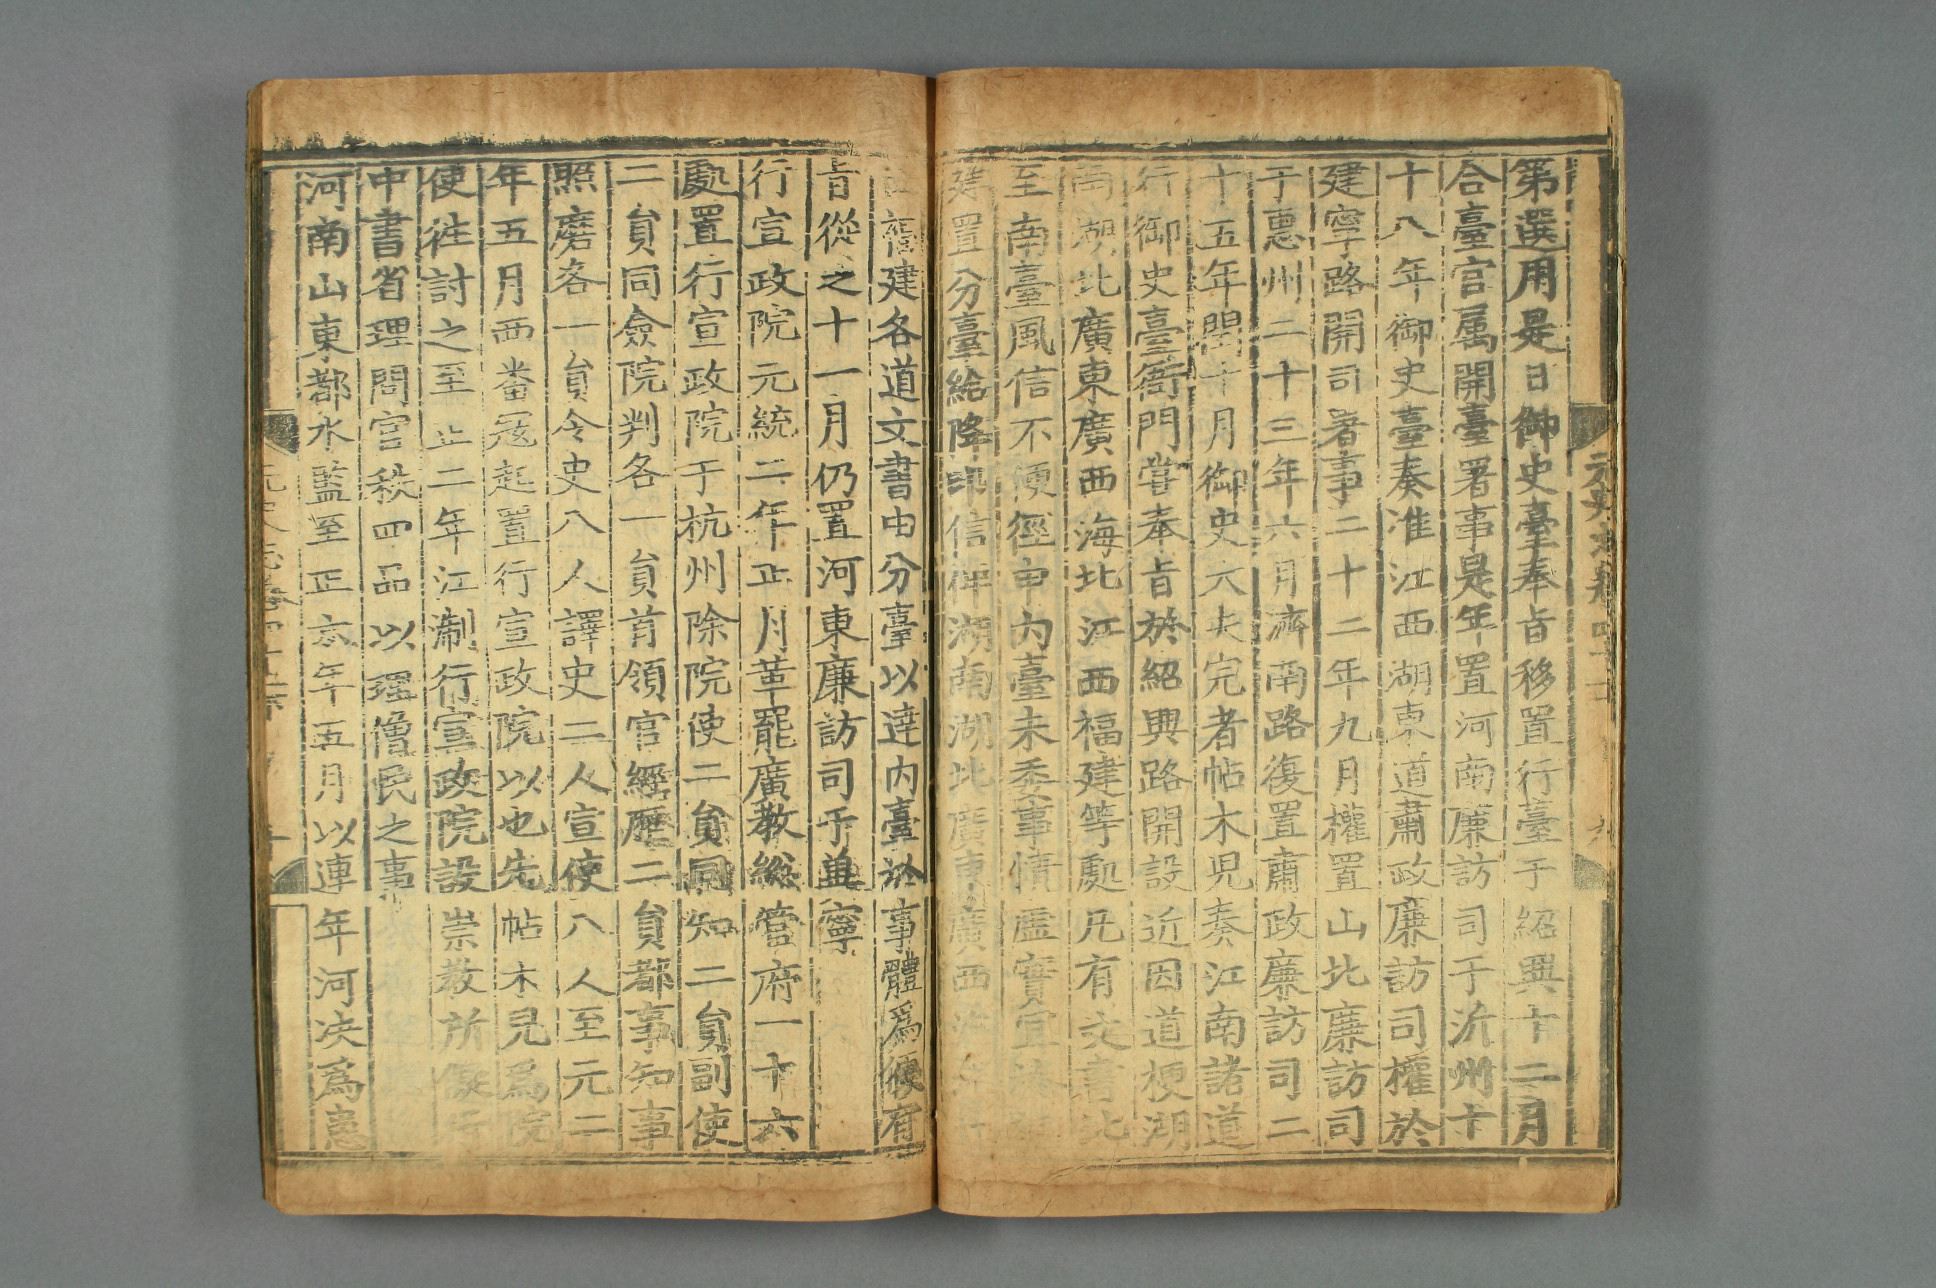 第選用是日御史臺奉旨移置行臺于紹興十二月
合臺官属開臺署事是年置河南廉訪司于沂州十
十八年御史臺奏准江西湖東道肅政廉訪司權於
建寧路開司署事二十二年九月權置山北廉訪司
于惠州二十三年六月濟南路復置肅政廉訪司二
十五年閏十月御史大夫完者帖木児奏江南諸道
行御史臺衙門嘗奉旨於紹興路開設近因道梗湖
南湖北廣東廣西海北江西福建等處凡有文書北
至南臺風信不便徑申內臺未委事情虛實宜
建置分臺給降印信俾湖南湖北廣東廣西海
舊建各道文書由分臺以達內臺於事體為便有
旨從之十一月仍置河東廉訪司于冀寧
行宣政院元統二年正月革罷廣教緫管府一十六
處置行宣政院于杭州除院使二貟同知二貟副使
二貟同僉院判各一貟首領官經歷二貟都事知事
照磨各一貟令史八人譯史二人宣使八人至元二
年五月西畨冦起置行宣政院以也先帖木児為院
使往討之至正二年江淛行宣政院設崇教所儗行
中書省理問官秩四品以理僧民之事
河南山東都水監至正六年五月以連年河决為患